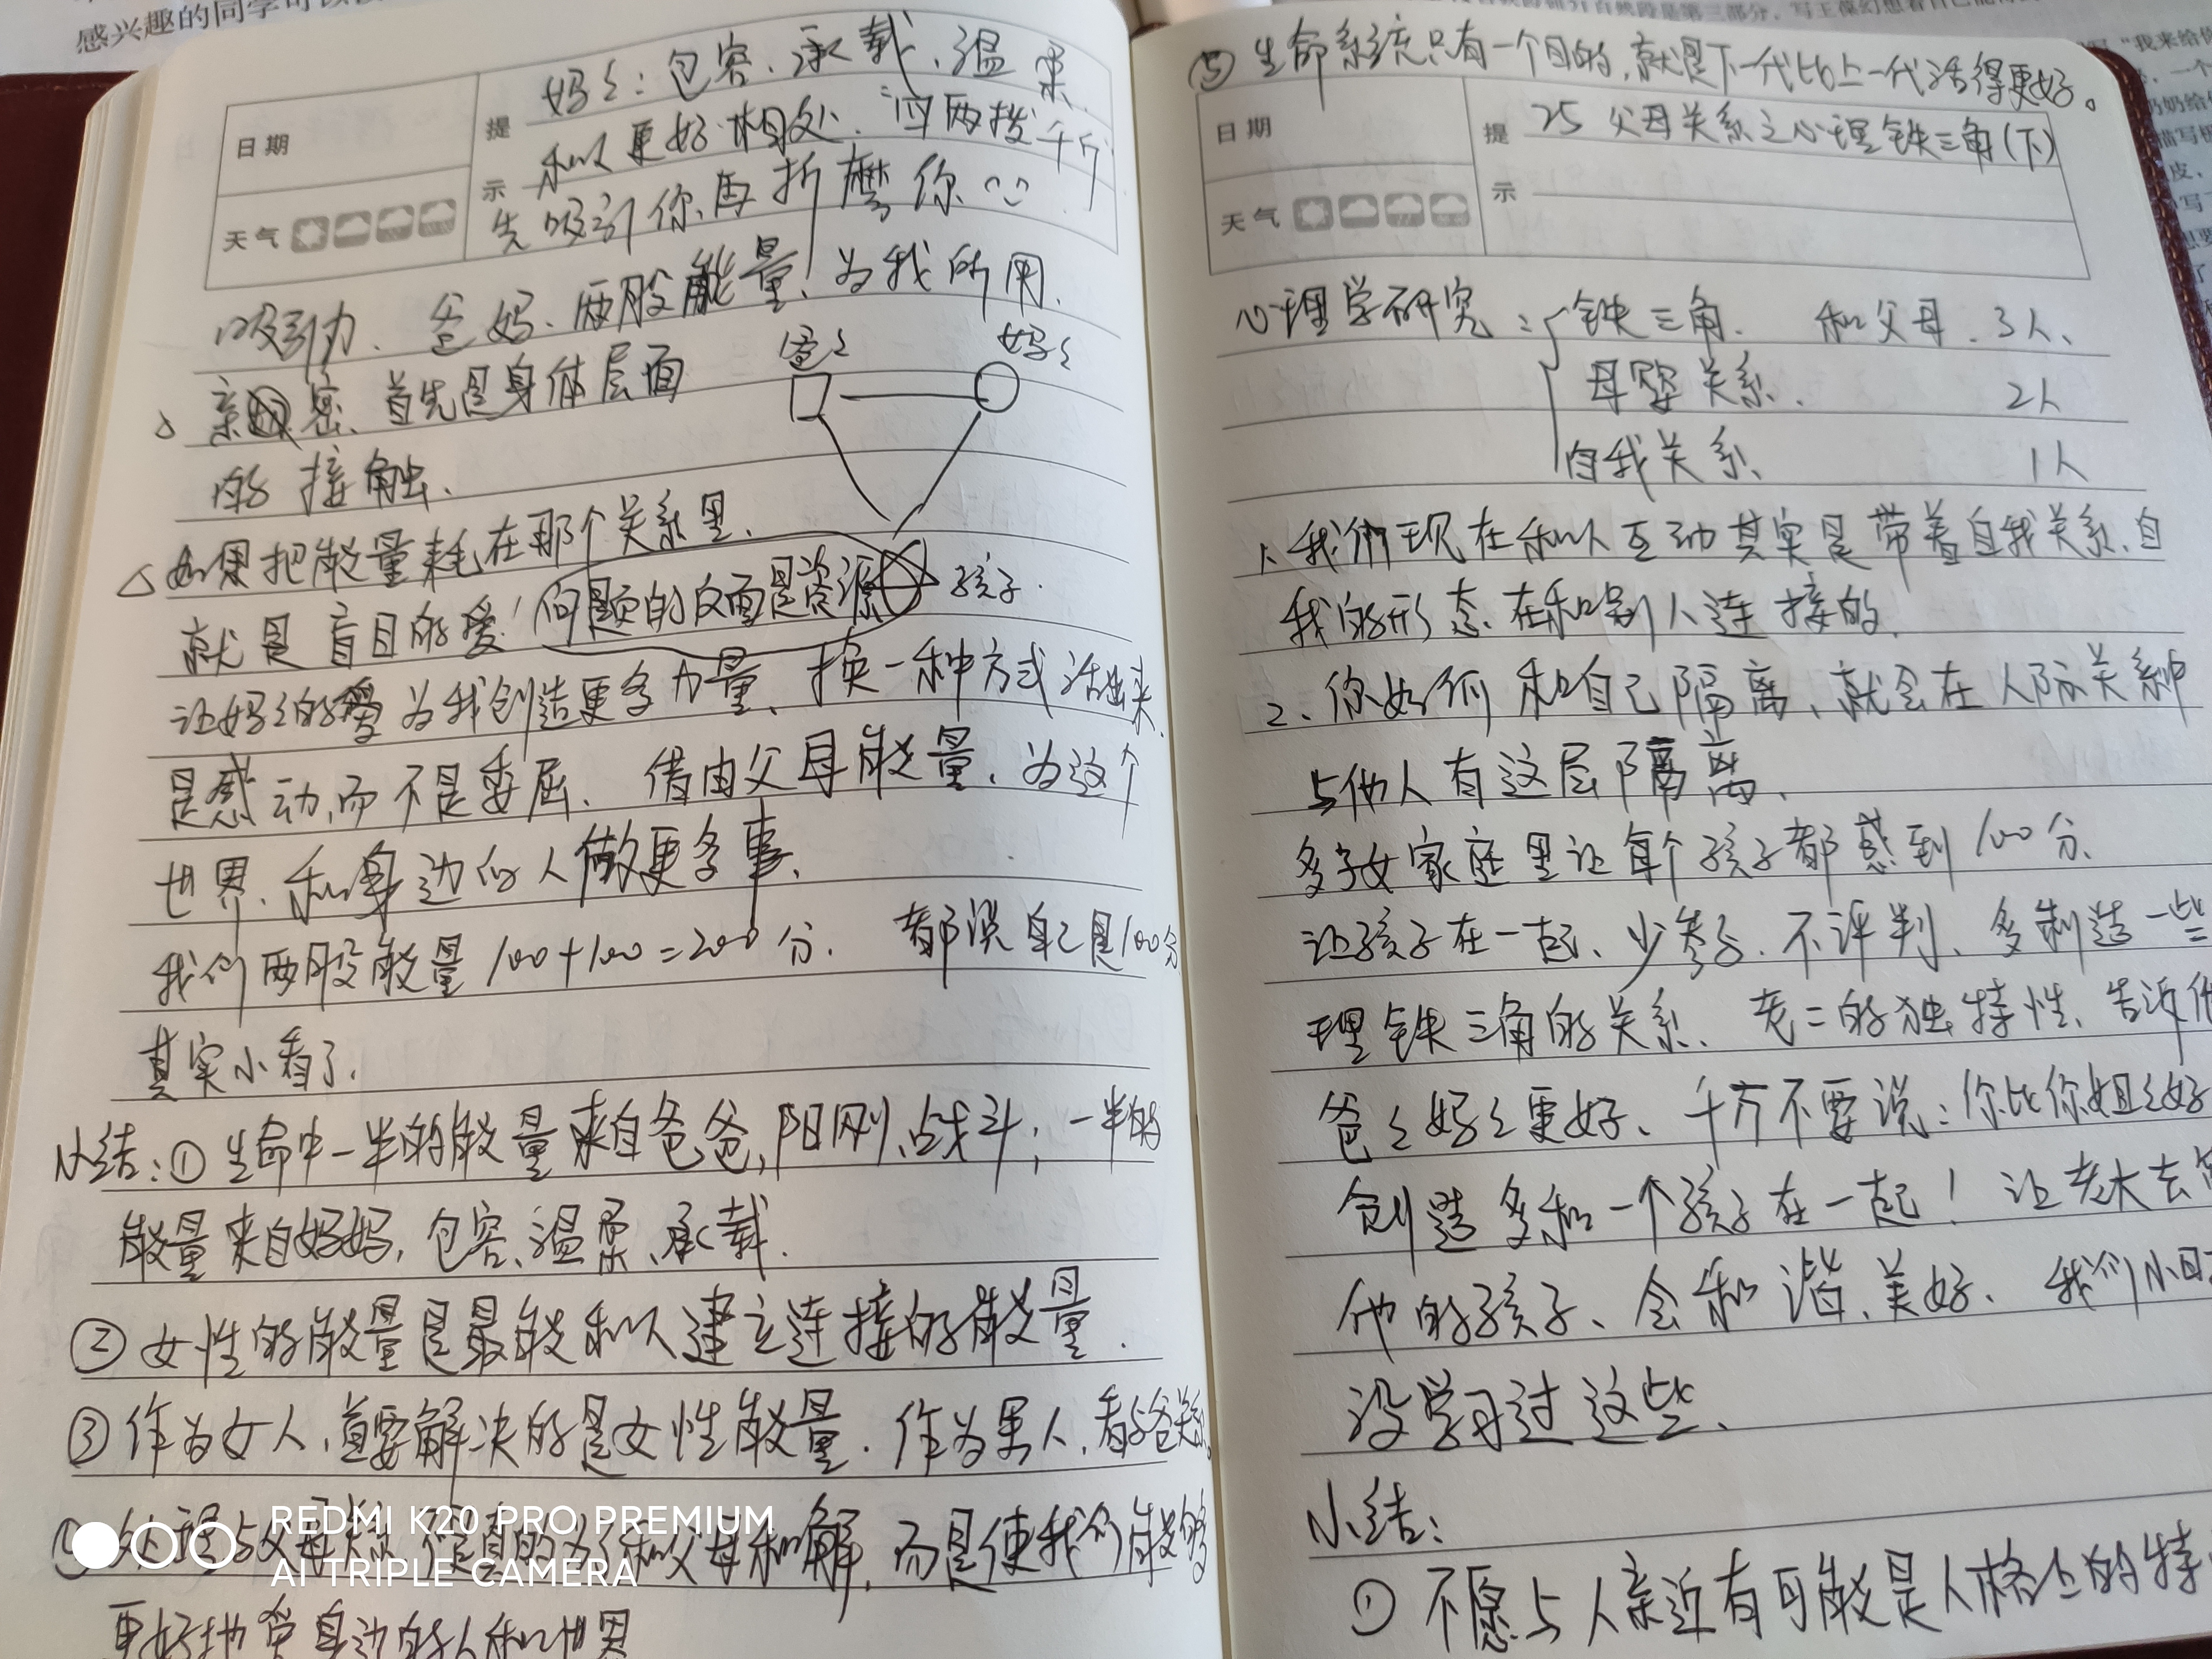 感兴趣的同学可以
日期
提示
天气
妈く:包容、承载、温柔.
和人更好相处、四两拨千斤
先吸引你、再折磨你
吸引力、爸妈、两股能量!为我所用.
爸く 妈く
亲密、首先是身体层面
的接触.
△如果把能量耗在那个关系里、
就是盲目的爱!问题的反面是资源 孩子.
让妈く的爱为我创造更多力量、换一种方式活出来.
是感动,而不是委屈、借由父母能量、为这个
世界、和身边的人做更多事、
我们两股能量100+100=200分. 都说自己是100分
其实小看了.
小结:①生命中一半的能量来自爸爸,阳刚、战斗;一半的
能量来自妈妈,包容、温柔、承载.
②女性的能量是最能和人建立连接的能量.
③作为女人、首要解决的是女性能量.作为男人,看与爸关系。
处理与父母关系 和父母和解,而是使我们能够
更好地 身边的人和世界
REDMI K20 PRO PREMIUM
AI TRIPLE CAMERA
自然段是第三部分,写王葆幻想着自己
"我来给你
⑤生命系统只有一个目的,就是下一代比上一代活得更好。
日期
提示
天气
25 父母关系之心理铁三角(下)
心理学研究:铁三角. 和父母.3人、
母婴关系. 2人
自我关系 1人
1、我们现在和人互动其实是带着自我关系、自
我的形态在和别人连接的.
2、你如何和自己隔离、就会在人际关系中
与他人有这层隔离、
多子女家庭里让每个孩子都感到100分、
让孩子在一起、少参与、不评判、多制造一些
理铁三角的关系、老二的独特性、告诉他
爸く妈く更好、千万不要说:你比你姐く好
创造多和一个孩子在一起!让老大去
他的孩子、会和谐、美好、我们小时
没学习过这些、
小结:
①不愿与人亲近有可能是人格上的特